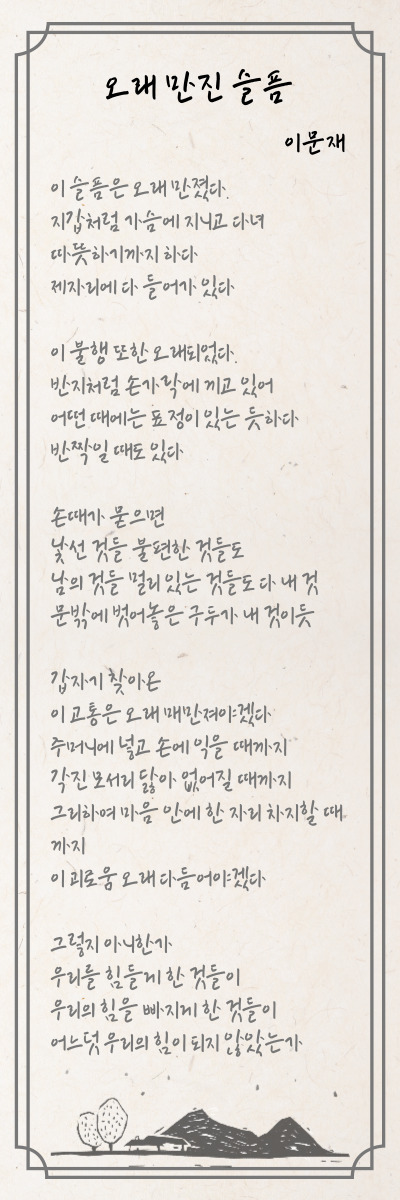 오래 만진 슬픔
이문재
이 슬픔은 오래 만졌다.
지갑처럼 가슴에 지니고 다녀
따뜻하기까지 하다
제자리에 다 들어가 있다
이 불행 또한 오래되었다.
반지처럼 손가락에 끼고 있어
어떤 때에는 표정이 있는 듯하다
반짝일 때도 있다
손때가 묻으면
낯선 것들 불편한 것들도
남의 것들 멀리 있는 것들도 다 내 것
문밖에 벗어놓은 구두가 내 것이듯
갑자기 찾아온
이 고통은 오래 매만져야겠다
주머니에 넣고 손에 익을 때까지
각진 모서리 닳아 없어질 때까지
그리하여 마음 안에 한 자리 차지할 때
까지
이 괴로움 오래 다듬어야겠다
그렇지 아니한가
우리를 힘들게 한 것들이
우리의 힘을 빠지게 한 것들이
어느덧 우리의 힘이 되지 않았는가